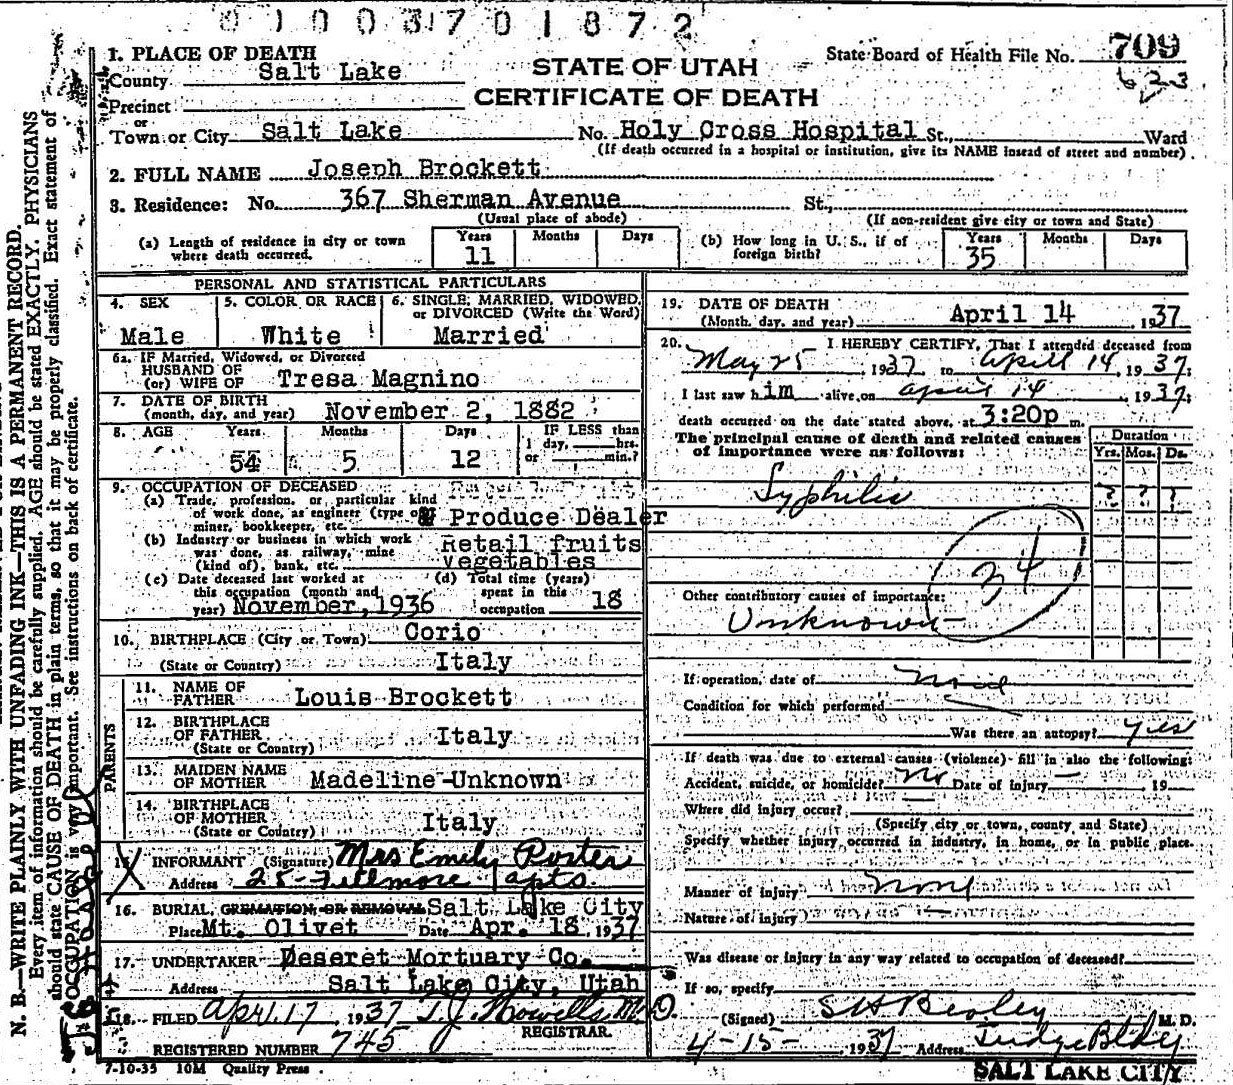 01003701872
1. PLACE OF DEATH
County Salt Lake
STATE OF UTAH
State Board of Health File No. 709
623
Precinct
CERTIFICATE OF DEATH
or
Town or City Salt Lake No. Holy Cross Hospital St., Ward
(If death occurred in a hospital or institution, give its NAME instead of street and number)
2. FULL NAME Joseph Brockett
3. Residence: No. 367 Sherman Avenue St.,
(Usual place of abode) (If non-resident give city or town and State)
(a) Length of residence in city or town where death occurred. Years 11 Months Days
(b) How long in U. S., if of foreign birth? Years 35 Months Days
PERSONAL AND STATISTICAL PARTICULARS
4. SEX Male
5. COLOR OR RACE White
6. SINGLE, MARRIED, WIDOWED, or DIVORCED (Write the Word) Married
6a. IF Married, Widowed, or Divorced
HUSBAND OF
(or) WIFE OF Tresa Magnino
7. DATE OF BIRTH
(month, day, and year) November 2, 1882
8. AGE Years 54 Months 5 Days 12
IF LESS than
1 day, hrs.
or min.?
9. OCCUPATION OF DECEASED
(a) Trade, profession, or particular kind
of work done, as engineer (type of
miner, bookkeeper, etc. Produce Dealer
(b) Industry or business in which work
was done, as railway, mine
(kind of), bank, etc. Retail fruits
vegetables
(c) Date deceased last worked at
this occupation (month and
year) November, 1936
(d) Total time (years)
spent in this
occupation 18
10. BIRTHPLACE (City or Town) Corio
(State or Country) Italy
PARENTS
11. NAME OF
FATHER Louis Brockett
12. BIRTHPLACE
OF FATHER
(State or Country) Italy
13. MAIDEN NAME
OF MOTHER Madeline-Unknown
14. BIRTHPLACE
OF MOTHER
(State or Country) Italy
15. INFORMANT (Signature) Mrs Emily Porter
Address 25-Fillmore apts.
16. BURIAL, CREMATION, OR REMOVAL Salt Lake City
Place Mt. Olivet Date Apr. 18, 1937
17. UNDERTAKER Deseret Mortuary Co.
Address Salt Lake City, Utah
18. FILED April 17, 1937 T. J. Howells, M.D.
REGISTRAR.
REGISTERED NUMBER 745
7-10-35 10M Quality Press
19. DATE OF DEATH
(Month, day, and year) April 14, 1937
20. I HEREBY CERTIFY, That I attended deceased from
May 25, 1937, to April 14, 1937;
I last saw him alive on april 14, 1937;
death occurred on the date stated above, at 3:20p m.
The principal cause of death and related causes
of importance were as follows:
Duration
Yrs. Mos. Ds.
Syphilis ? ? ?
34
Other contributory causes of importance:
Unknown
If operation, date of None
Condition for which performed
Was there an autopsy? yes
If death was due to external causes (violence) fill in also the following:
Accident, suicide, or homicide? No Date of injury 19
Where did injury occur?
(Specify city or town, county and State)
Specify whether injury occurred in industry, in home, or in public place.
Manner of injury None
Nature of injury
Was disease or injury in any way related to occupation of deceased?
If so, specify
(Signed) M. D.
4-15- 1937 Address Judge Bldg
SALT LAKE CITY
N. B.—WRITE PLAINLY WITH UNFADING INK—THIS IS A PERMANENT RECORD.
Every item of information should be carefully supplied. AGE should be stated EXACTLY. PHYSICIANS
should state CAUSE OF DEATH in plain terms, so that it may be properly classified. Exact statement of
OCCUPATION is very important. See instructions on back of certificate.